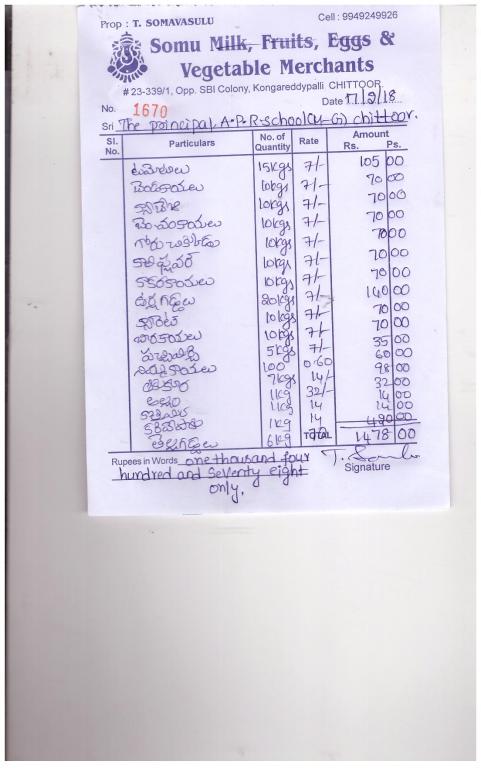 Prop : T. SOMAVASULU
Cell : 9949249926
Somu Milk, Fruits, Eggs &
Vegetable Merchants
# 23-339/1, Opp. SBI Colony, Kongareddypalli CHITTOOR.
No. 1670 Date 17/2/18
Sri The principal, A.P.R-school(U-G) chittoor.
Sl. No. Particulars No. of Quantity Rate Amount Rs. Ps.
టమోటాలు 15kgs 7/- 105 00
బెండకాయలు 10kgs 7/- 70 00
10kgs 7/- 70 00
వంకాయలు 10kgs 7/- 70 00
గోరు చిక్కుడు 10kgs 7/- 70 00
కాలిఫ్లవర్ 10kgs 7/- 70 00
కాకరకాయలు 10kgs 7/- 70 00
ఉర్లగడ్డలు 20kgs 7/- 140 00
క్యారెట్ 10kgs 7/- 70 00
బీరకాయలు 10kgs 7/- 70 00
5kgs 7/- 35 00
నిమ్మకాయలు 100 0.60 60 00
7kgs 14/- 98 00
అల్లం 1kg 32/- 32 00
కొత్తిమీర 1kg 14 14 00
కరివేపాకు 1kg 14 14 00
తెల్లగడ్డలు 6kg 420 00
TOTAL 1478 00
Rupees in Words one thousand four
hundred and seventy eight
only.
Signature